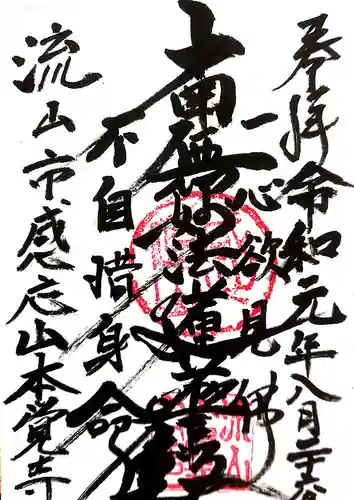 奉拝令和元年八月二十六
一心欲見佛
南無妙法蓮華経
不自惜身命
流山市感応山本覚寺